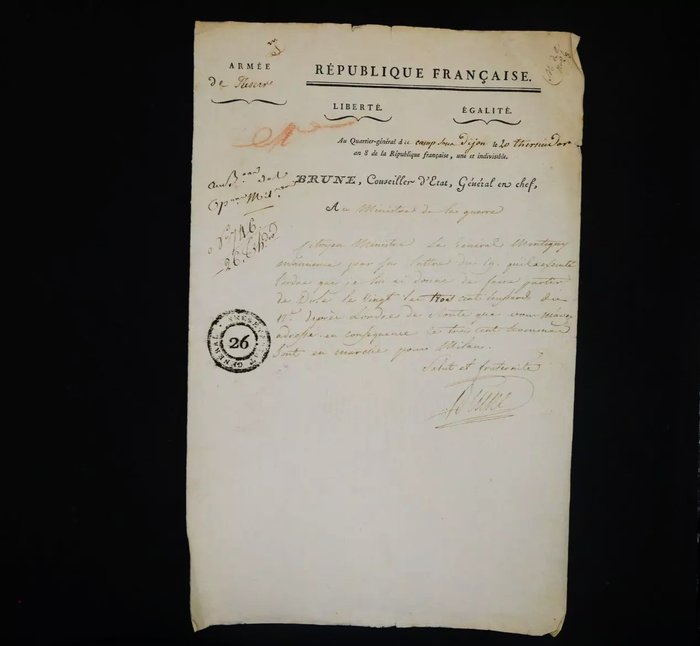 ARMÉE
RÉPUBLIQUE FRANÇAISE.
de Réserve
LIBERTÉ. ÉGALITÉ.
Au Quartier-général du camp sous Dijon le 20 thermidor
an 8 de la République française, une et indivisible.
BRUNE, Conseiller d'Etat, Général en chef,
Au Ministre de la guerre
Citoyen Ministre Le Général Montigny
par sa lettre du 19. qu'il a exécuté
l'ordre que je lui ai donné de faire partir
de Dole le vingt les trois cent hussards du
12e d'après l'ordre de route que vous m'avez
adressé en conséquence ces trois cent hommes
sont en marche pour Milan.
Salut et fraternité
Brune
26
GÉNÉRAL